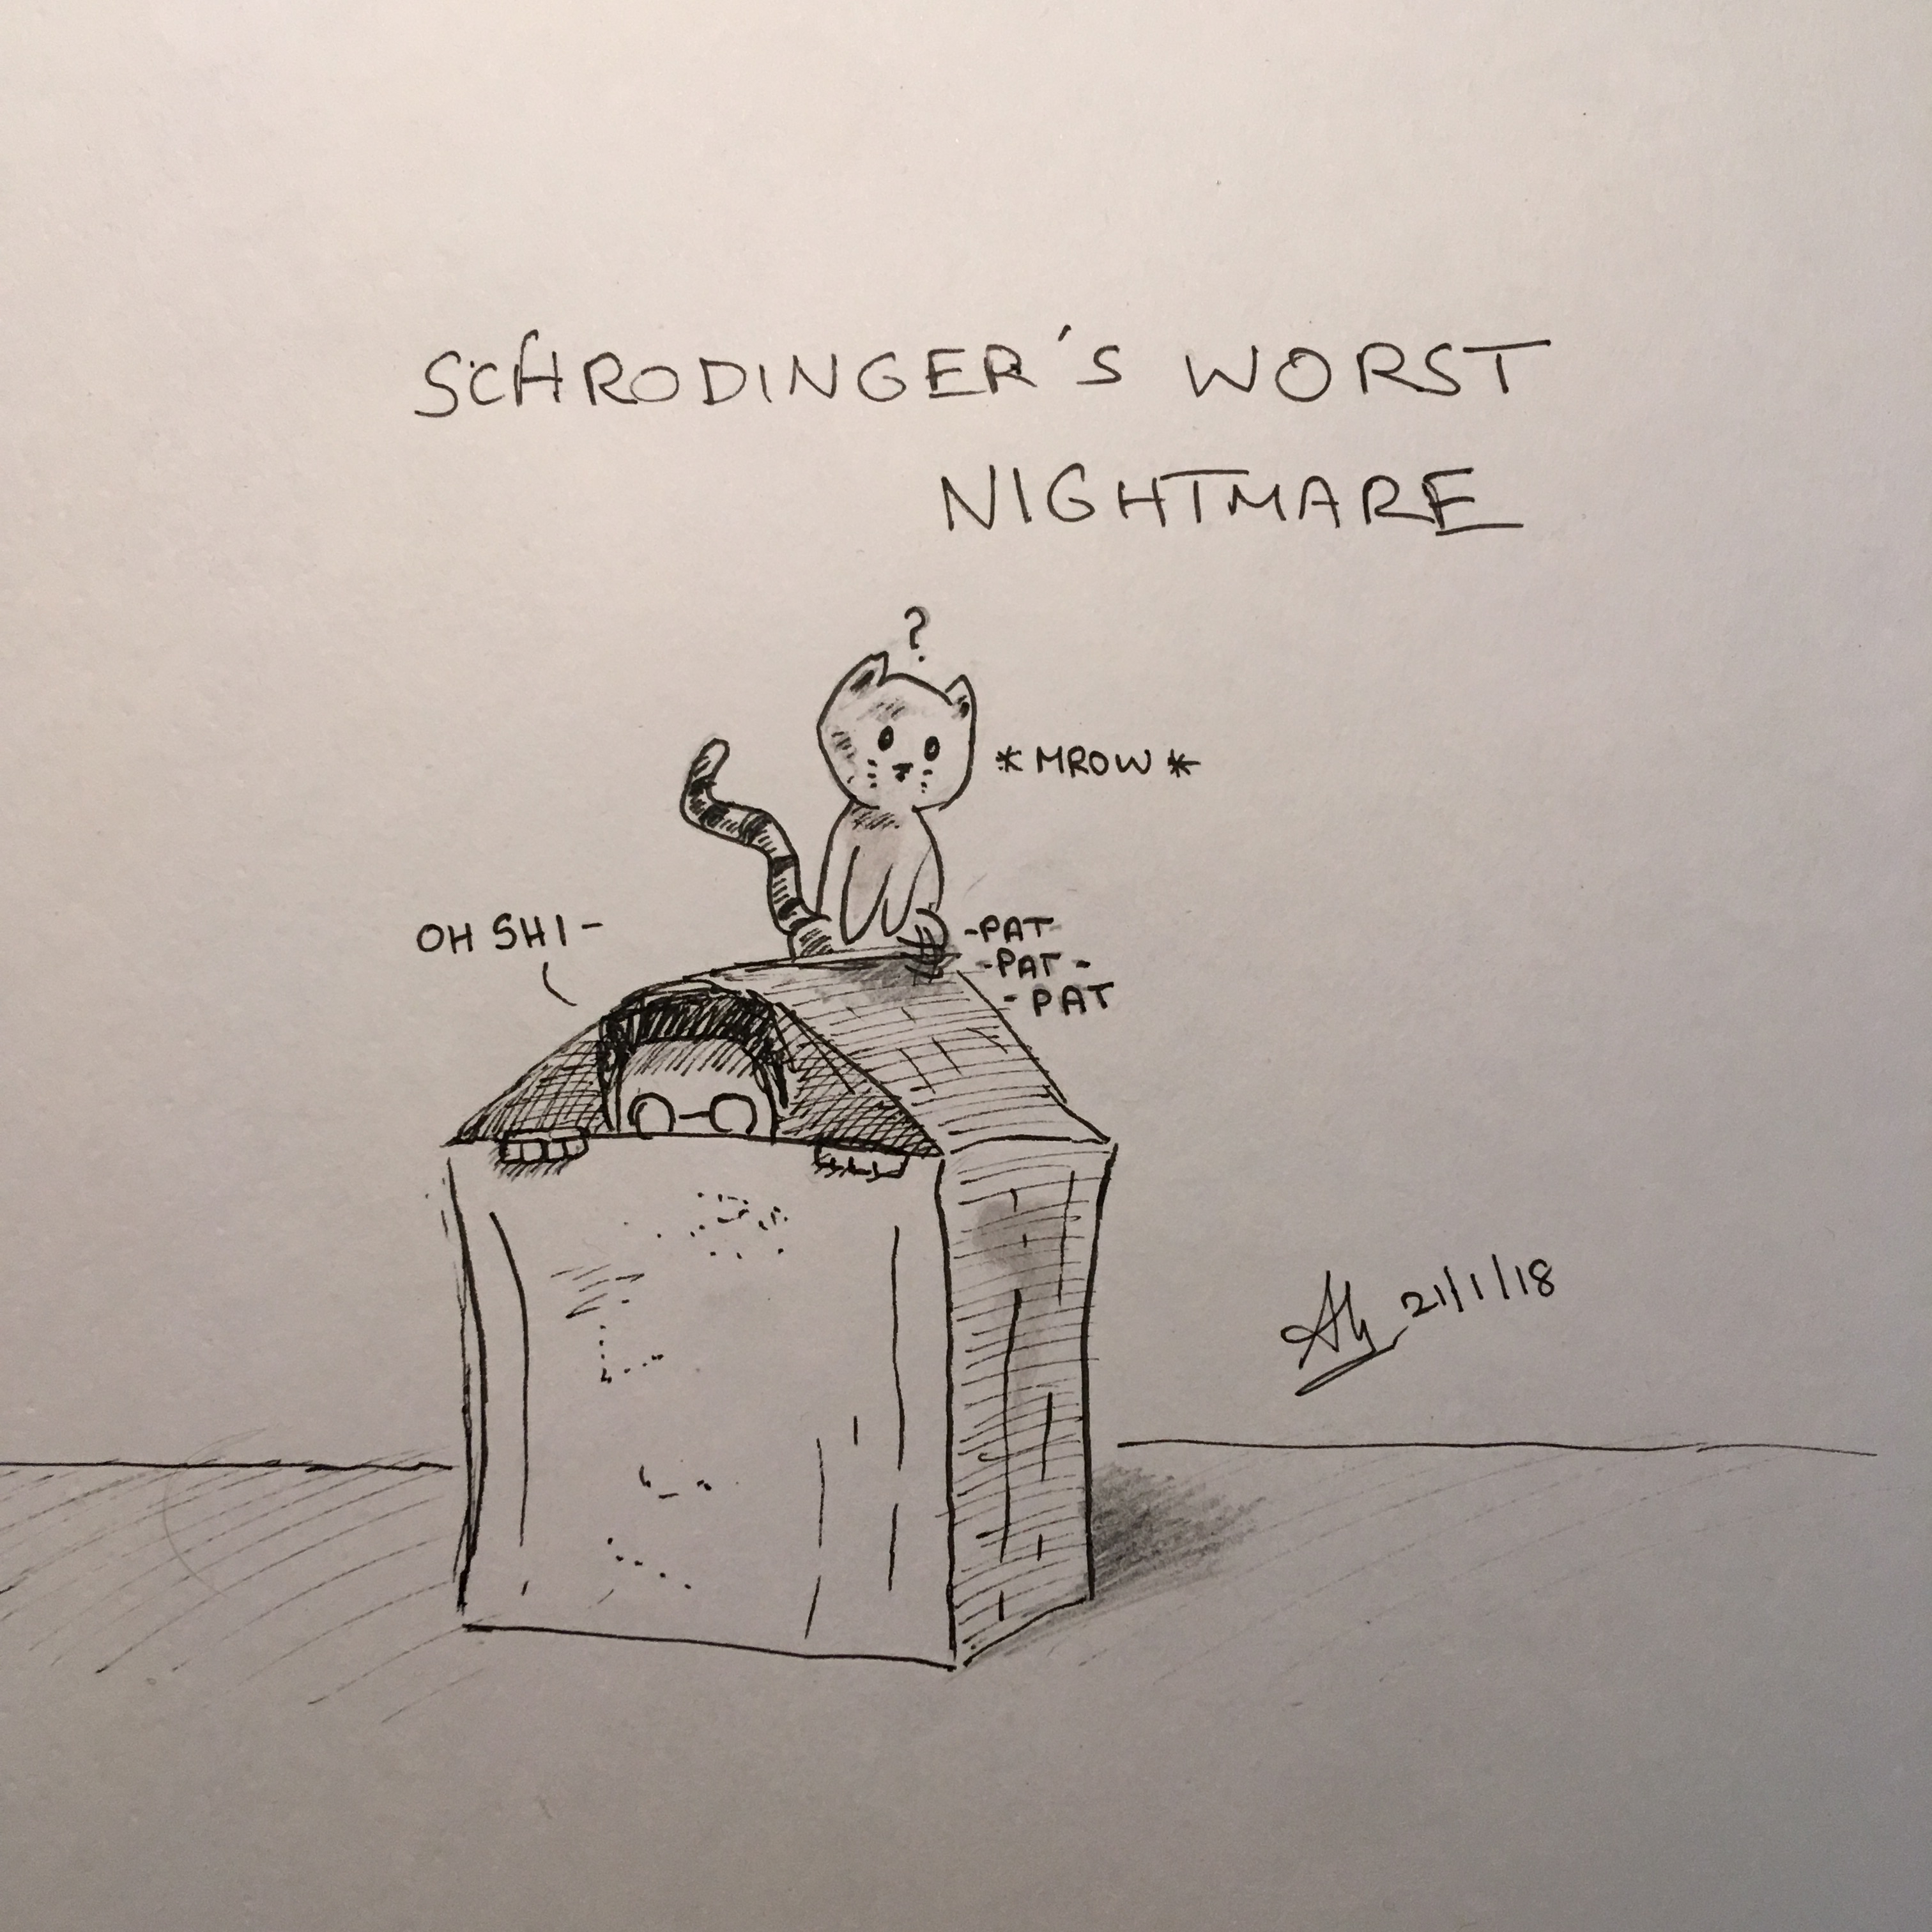 SCHRODINGER'S WORST
NIGHTMARE
?
*MROW*
OH SHI-
-PAT
-PAT-
-PAT
21/1/18